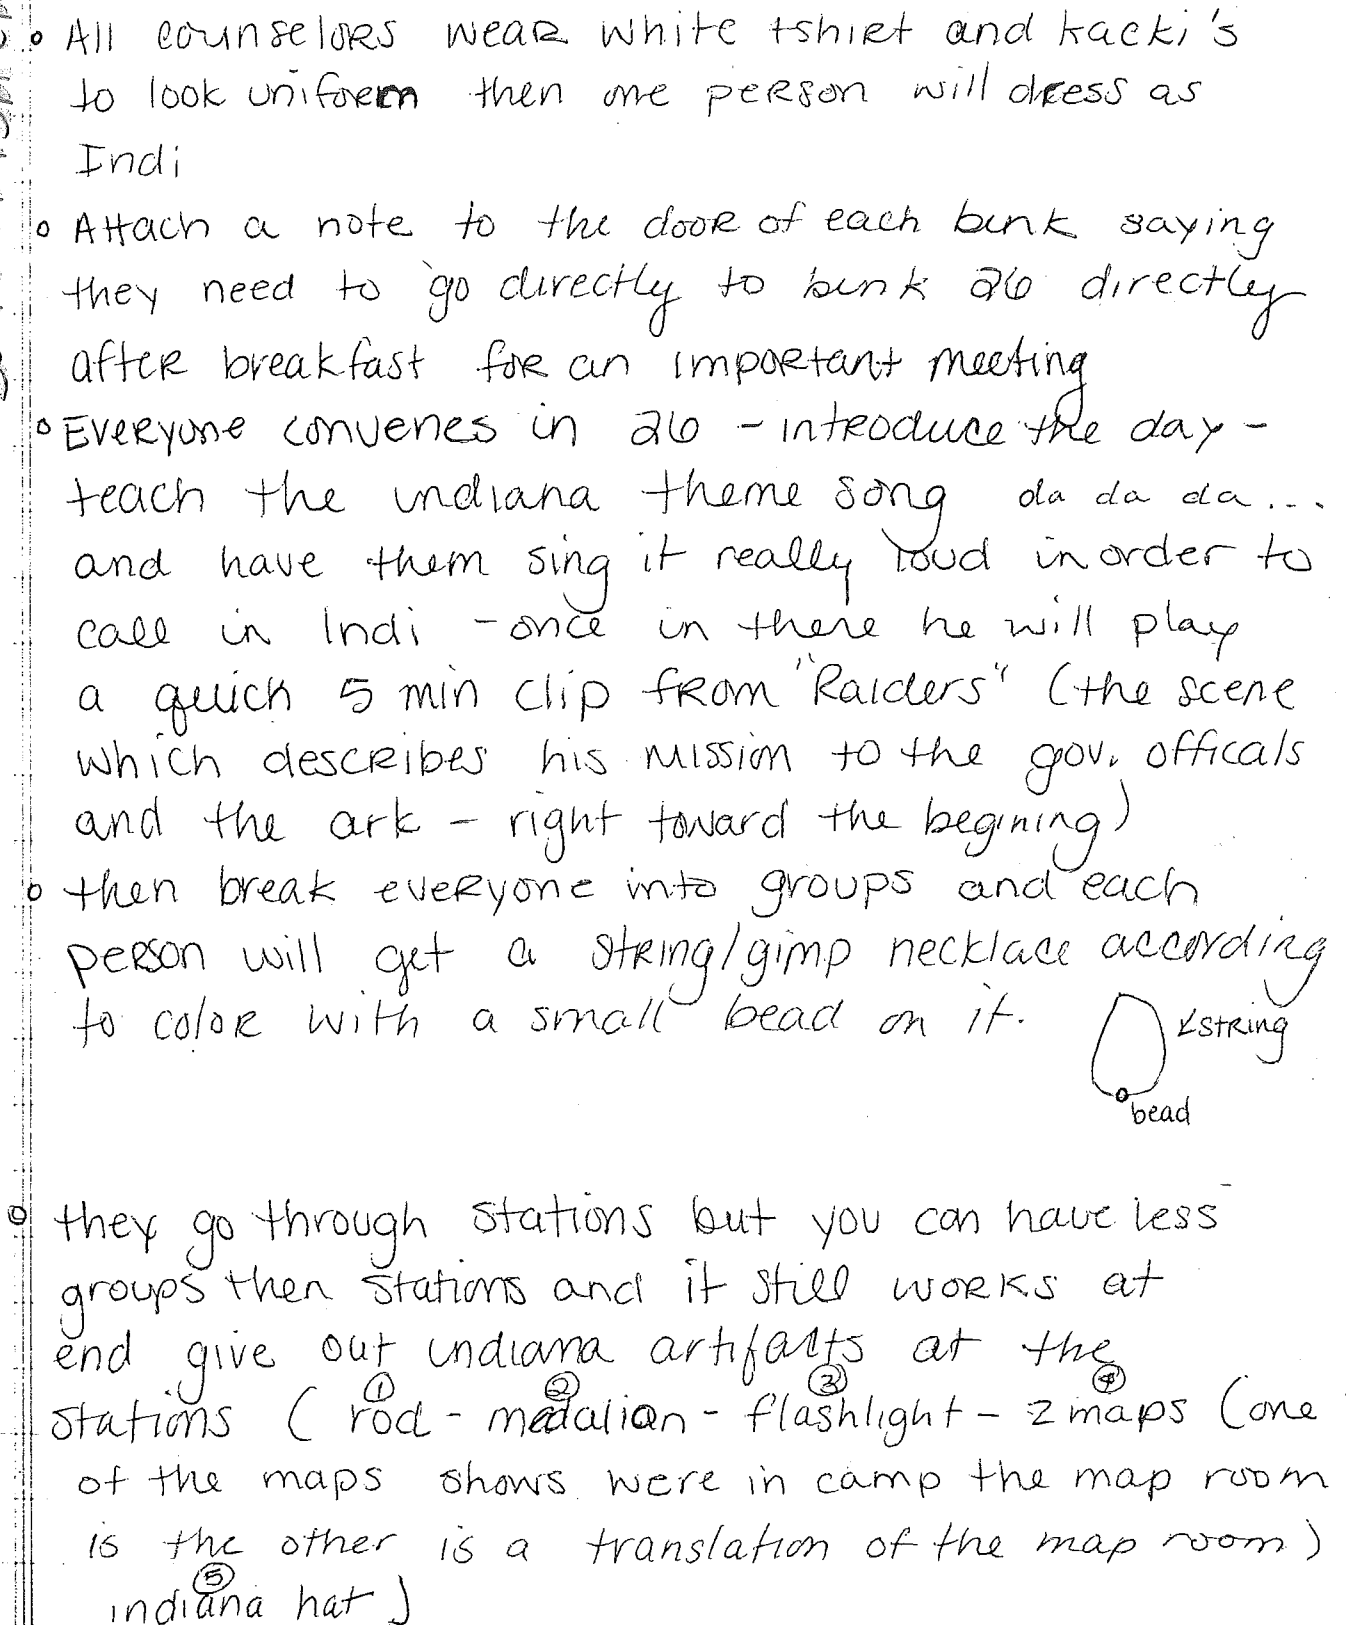 All counselors wear white tshirt and kacki's
to look uniform then one person will dress as
Indi
Attach a note to the door of each bunk saying
they need to go directly to bunk 26 directly
after breakfast for an important meeting
Everyone convenes in 26 - introduce the day -
teach the indiana theme song da da da...
and have them sing it really loud in order to
call in Indi - once in there he will play
a quick 5 min clip from "Raiders" (the scene
which describes his mission to the gov. officals
and the ark - right toward the begining)
then break everyone into groups and each
person will get a string/gimp necklace according
to color with a small bead on it.
string
bead
they go through stations but you can have less
groups then stations and it still works at
end give out indiana artifacts at the
① ② ③ ④
stations ( rod - medalian - flashlight - 2 maps (one
of the maps shows were in camp the map room
is the other is a translation of the map room)
⑤
indiana hat )